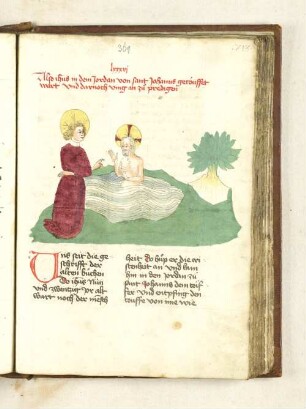 361
lxxxvj
Also ihus in dem Jordan von sant Johanns getöuffet
wart und darnoch ving an zü predigen
Uns seit die ge
schrifft der
alten büchen
Do ihus
und zwentzig Jor alt
wart noch der mesch
heit do hüp er die cri
stenheit an und kam
hin in den Jordan zü
sant Johanns dem töif
fer und entpfing den
touffe von ime wie